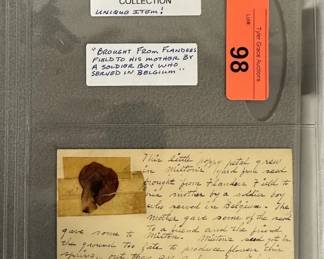 COLLECTION
UNIQUE ITEM!
"BROUGHT FROM FLANDERS
FIELD TO HIS MOTHER BY
A SOLDIER BOY WHO
SERVED IN BELGIUM"
Tyler Grace Auctions
Lot#
98
This little poppy petal grew
in Milton's yard from seed
brought from Flanders Field to
his mother by a soldier boy
who served in Belgium. The
mother gave some of the seed
to a friend and the friend
gave some to Milton. Milton's seed got in
the ground too late to produce flowers this
spring, but they are